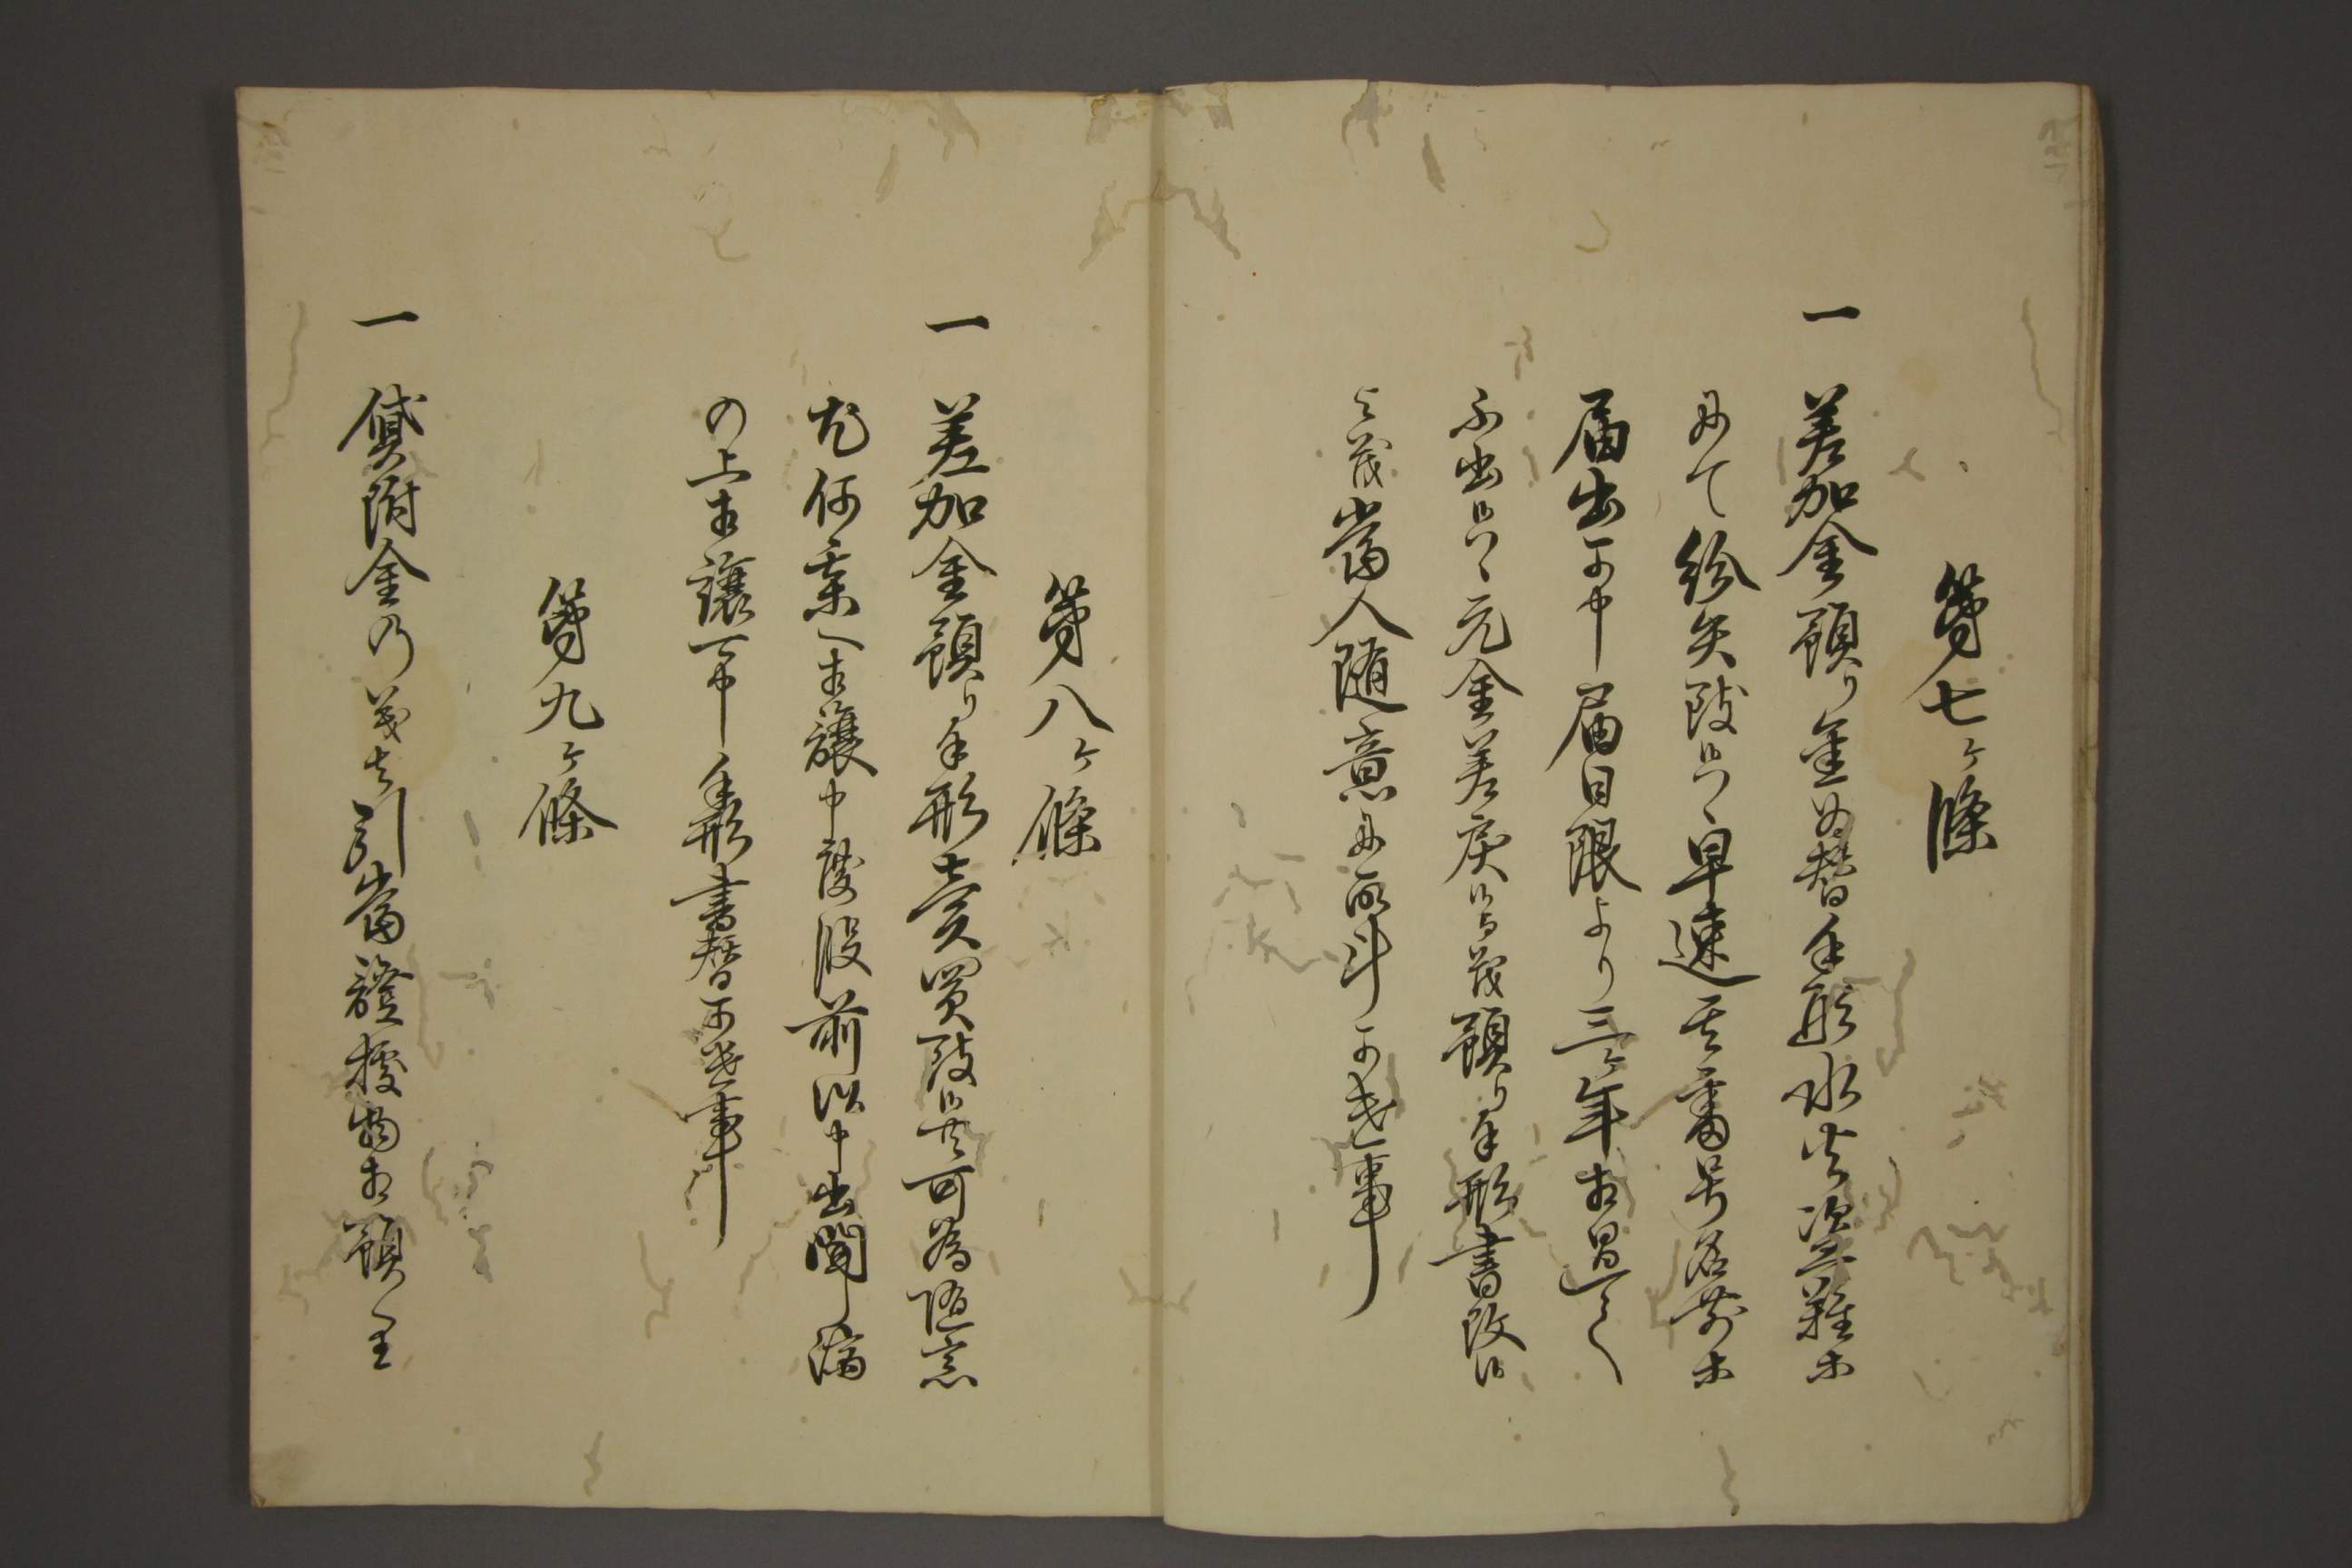 第七ヶ條
一 差加金預り金為替手形水火盗難等
にて紛失致候ハヽ早速其番号名前等
届出可申届日限より三ヶ年相過候て
不出候ハヽ元金差戻候与歟預り手形書改候
与歟当人随意に取斗可遣事
第八ヶ條
一 差加金預り手形売買致候共可為随意
尤何業へ相譲申度段前以申出聞済
の上相譲可申手形書替可遣事
第九ヶ條
一 貸附金の義者引當證拠物相預り